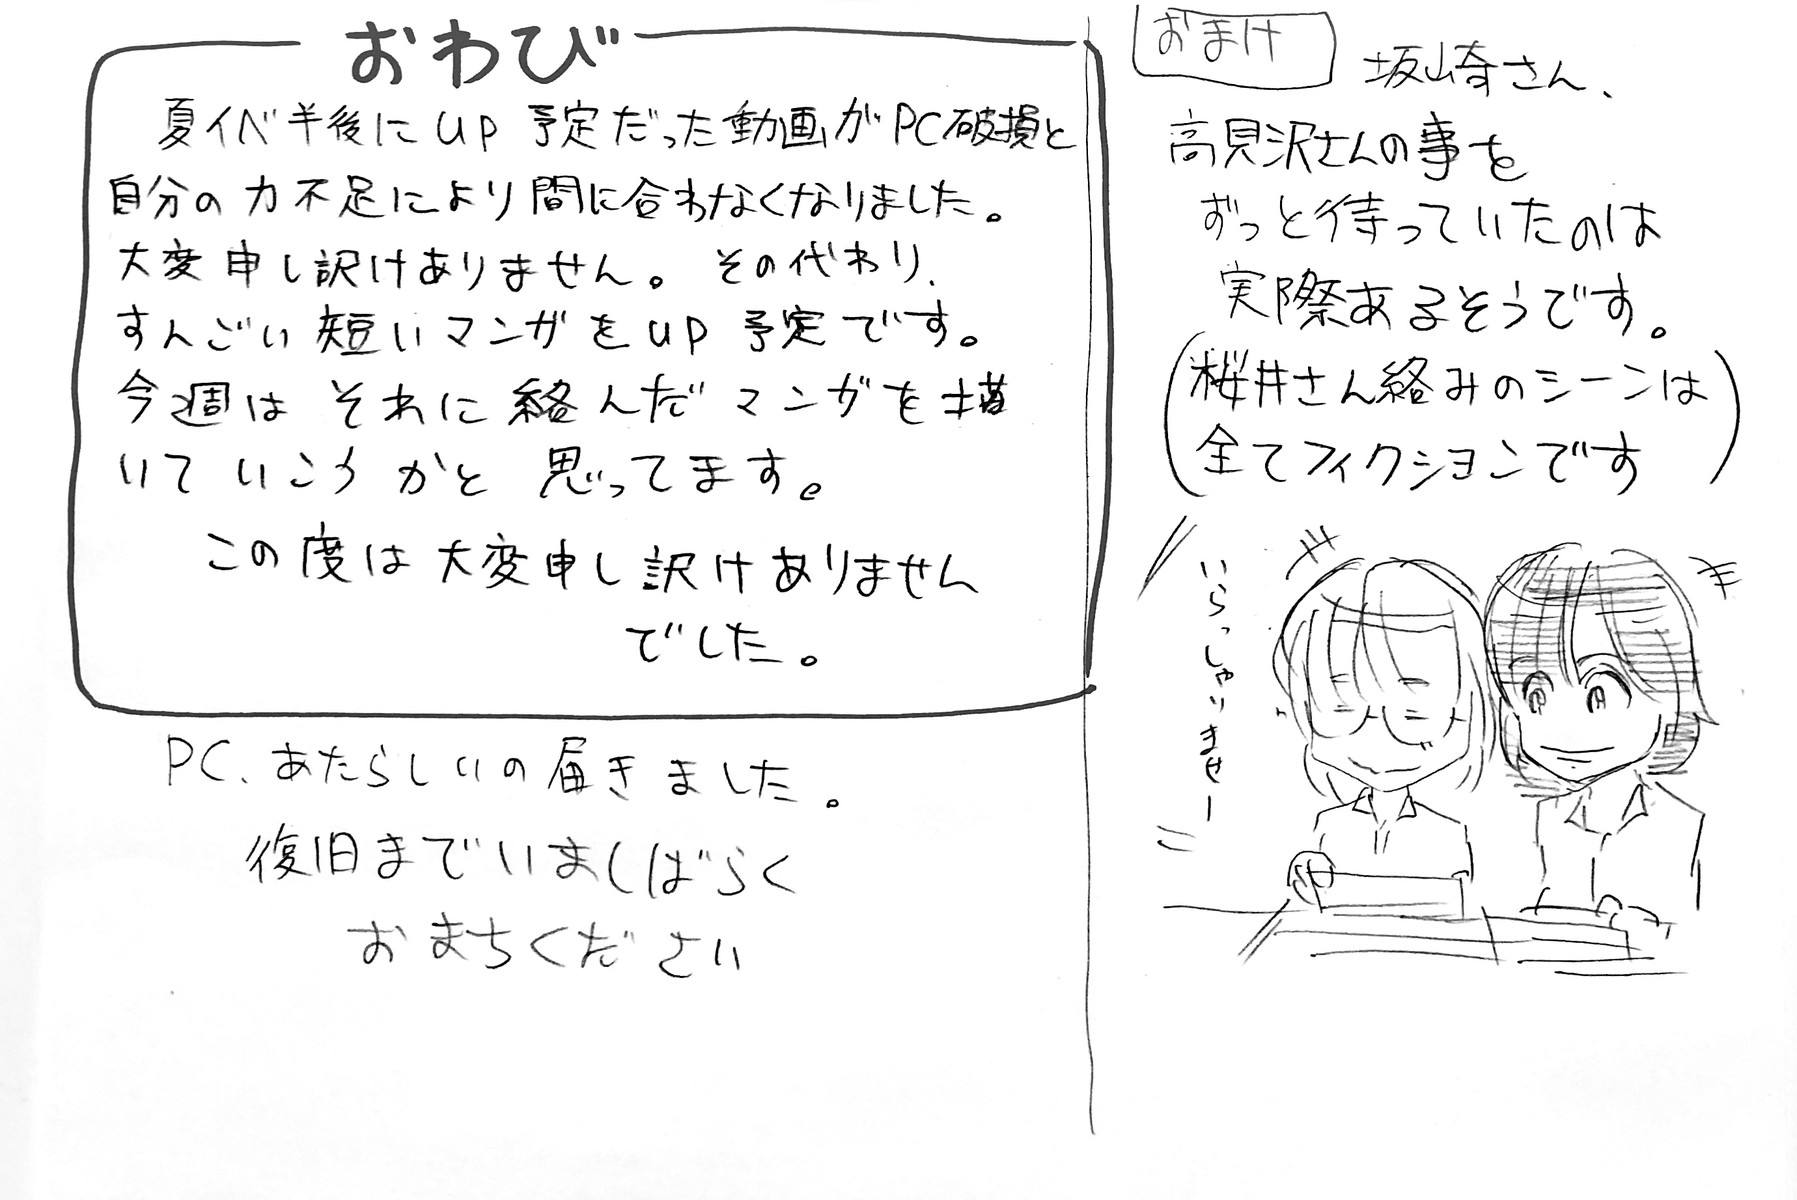 おわび
夏イベ半後にUP 予定だった動画がPC破損と
自分の力不足により間に合わなくなりました。
大変申し訳けありません。その代わり、
すんごい短いマンガをUP 予定です。
今週は それに絡んだマンガを描
いていこうかと思ってます。
この度は大変申し訳けありません
でした。
PC、あたらしいの届きました。
復旧までいましばらく
おまちください
おまけ
坂崎さん、
高見沢さんの事を
ずっと待っていたのは
実際あるそうです。
(桜井さん絡みのシーンは
全てフィクションです)
いらっしゃりませー